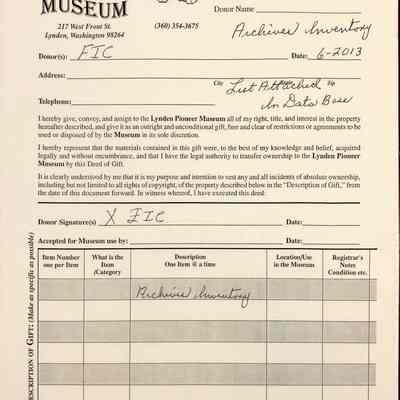 MUSEUM
217 West Front St. (360) 354-3675
Lynden, Washington 98264
Donor Name
Archives Inventory
Donor(s): FIC Date: 6-2013
Address:
City Zip
List Attached
Telephone: In Data Base
I hereby give, convey, and assign to the Lynden Pioneer Museum all of my right, title, and interest in the property
hereafter described, and give it as an outright and unconditional gift, free and clear of restrictions or agreements to be
used or disposed of by the Museum in its sole discretion.
I hereby represent that the materials contained in this gift were, to the best of my knowledge and belief, acquired
legally and without encumbrance, and that I have the legal authority to transfer ownership to the Lynden Pioneer
Museum by this Deed of Gift.
It is clearly understood by me that it is my purpose and intention to vest any and all incidents of absolute ownership,
including but not limited to all rights of copyright, of the property described below in the "Description of Gift," from the
date of this document forward. In witness whereof, I have executed this deed:
Donor Signature(s) X FIC Date:
Accepted for Museum use by: Date:
Item Number
one per Item
What is the
Item
/Category
Description
One Item @ a time
Location/Use
in the Museum
Registrar's
Notes
Condition etc.
Archives Inventory
DESCRIPTION OF GIFT: (Make as specific as possible)